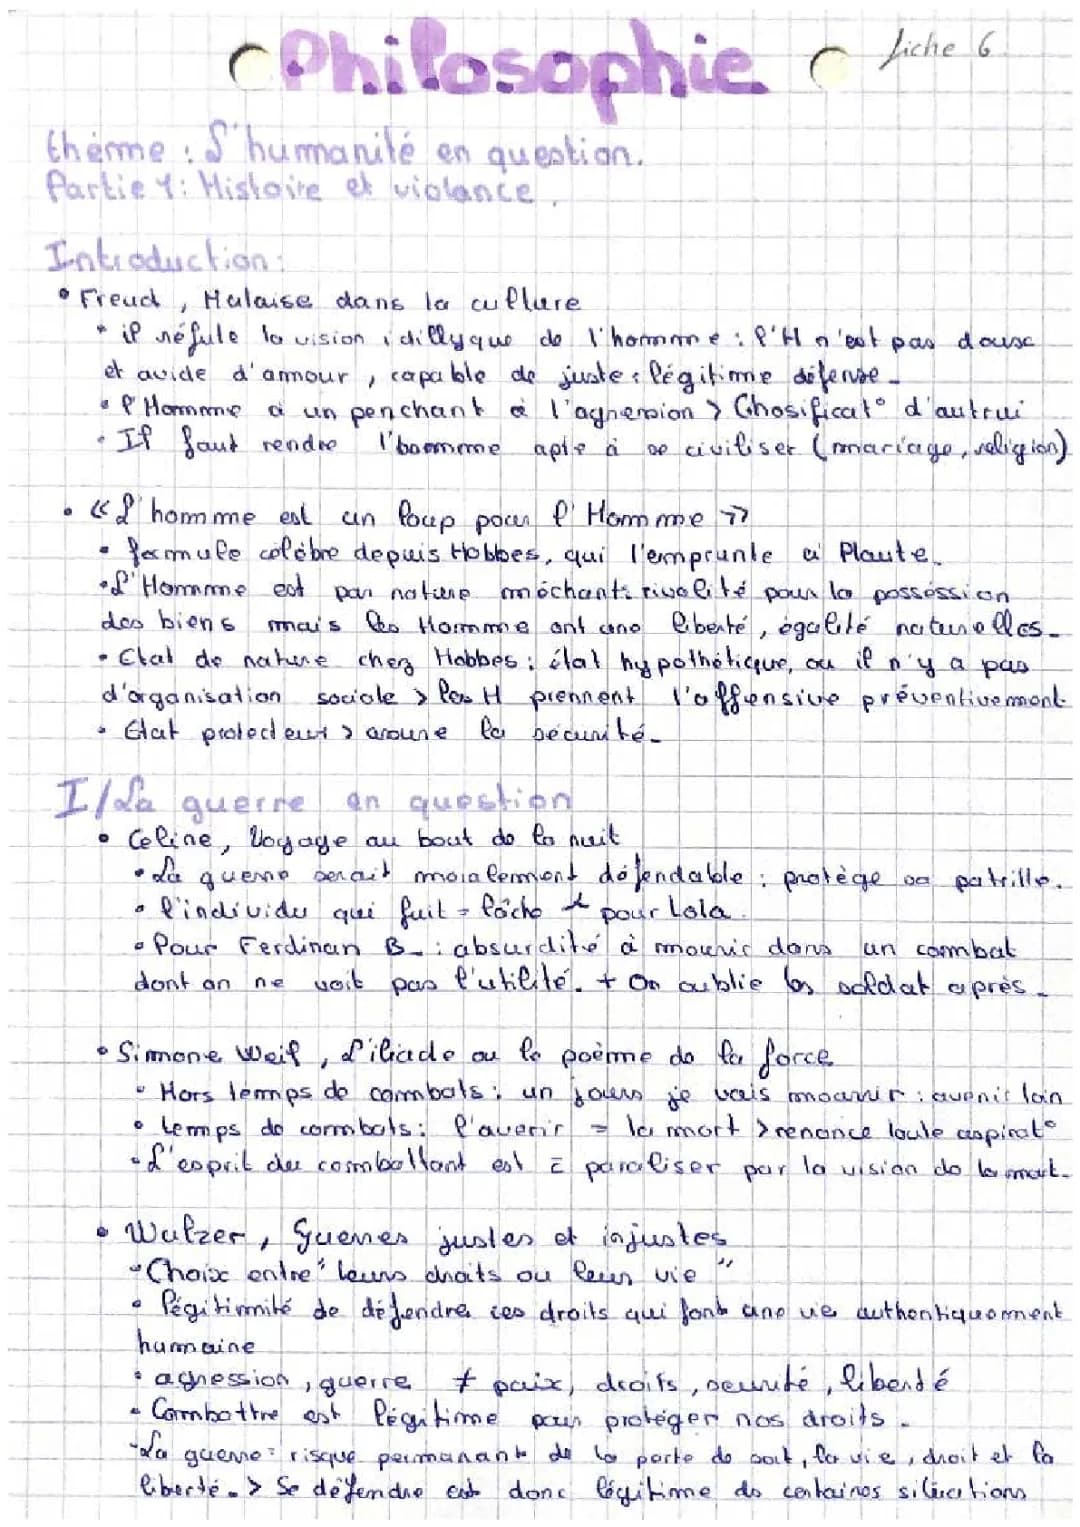 Philosophie
fiche 6
thème : L'humanité en question.
Partie 1: Histoire et violance.
Introduction:
• Freud, Malaise dans la culture
• il réfute la vision idillyque de l'homme : l'H n'est pas doux
et avide d'amour, capable de juste légitime défense.
• l'Homme a un penchant à l'agression > Chosificat° d'autrui
• Il faut rendre l'homme apte à se civiliser (mariage, religion)
• « L'homme est un loup pour l'Homme »
• formule célèbre depuis Hobbes, qui l'emprunte à Plaute.
• L'Homme est par nature méchant: rivalité pour la posséssion
des biens mais les Homme ont une liberté, égalité naturelles.
• Etat de nature chez Hobbes : état hypothétique, ou il n'y a pas
d'organisation sociale > les H prennent l'offensive préventivement
• Etat protecteur > assure la sécurité.
I/ La guerre en question
• Celine, Voyage au bout de la nuit
• La guerre serait moralement défendable : protège sa patrille.
• l'individu qui fuit = lâche pour Lola.
• Pour Ferdinan B. : absurdité à mourir dans un combat
dont on ne voit pas l'utilité. + On oublie les soldat après.
• Simone Weil, L'iliade ou le poème de la force
• Hors temps de combats : un jours je vais mourir : avenir loin
• temps de combats : l'avenir = la mort > renonce toute aspirat°
• L'esprit du combattant est paraliser par la vision de la mort.
• Walzer, Guerres justes et injustes
• Choix entre "leurs droits ou leur vie"
• légitimité de défendre ces droits qui font une vie authentiquement
humaine
• agression, guerre ≠ paix, droits, sécurité, liberté
• Combattre est légitime pour protéger nos droits.
• La guerre = risque permanant de la perte de soit, la vie, droit et la
liberté. > Se défendre est donc légitime ds certaines situations